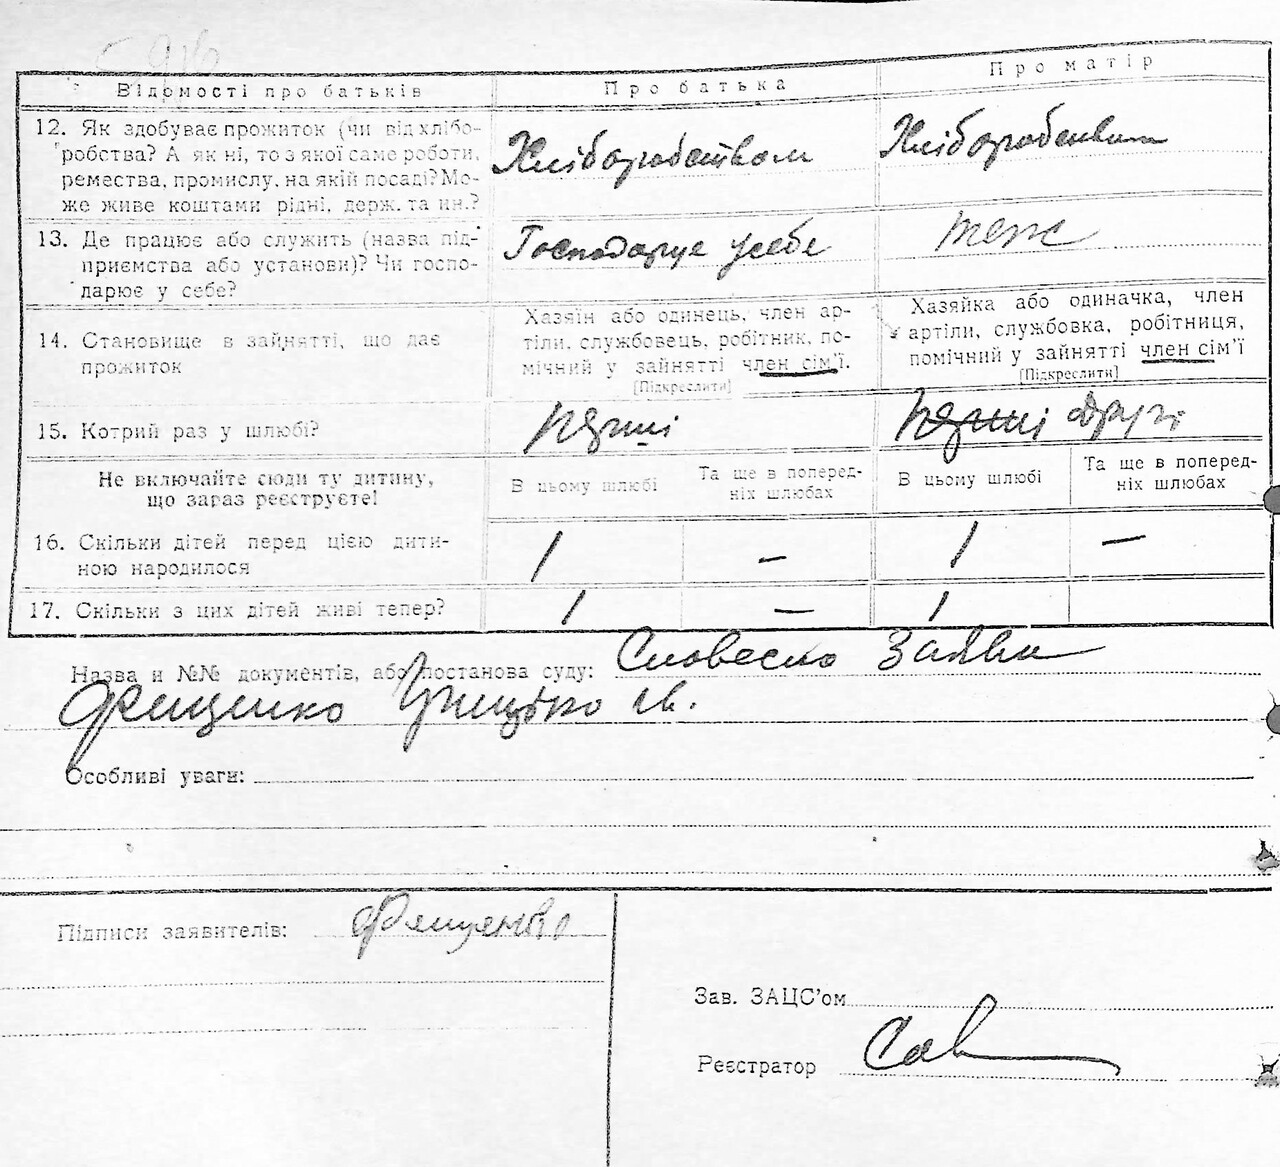 5916
Відомості про батьків Про батька Про матір
12. Як здобуває прожиток (чи від хлібо-
робства? А як ні, то з якої само роботи,
ремества, промислу, на якій посаді? Мо-
же живе коштами рідні, держ. та ин.?
Хліборобством
Хліборобством
13. Де працює або служить (назва під-
приємства або установи)? Чи госпо-
дарює у себе?
Господарує у себе
теж
14. Становище в зайнятті, що дає
прожиток
Хазяїн або одинець, член ар-
тілі, службовець, робітник, по-
мічний у зайнятті член сім'ї.
[Підкреслити]
Хазяйка або одиначка, член
артілі, службовка, робітниця,
помічний у зайнятті член сім'ї
[Підкреслити]
15. Котрий раз у шлюбі? перші перші другі
Не включайте сюди ту дитину,
що зараз реєструєте!
В цьому шлюбі
Та ще в поперед-
ніх шлюбах
В цьому шлюбі
Та ще в поперед-
ніх шлюбах
16. Скільки дітей перед цією дити-
ною народилося
1 — 1 —
17. Скільки з цих дітей живі тепер? 1 — 1
Назва и №№ документів, або постанова суду: Словесно Заява
Особливі уваги:
Підписи заявителів:
Зав. ЗАЦС'ом
Реєстратор